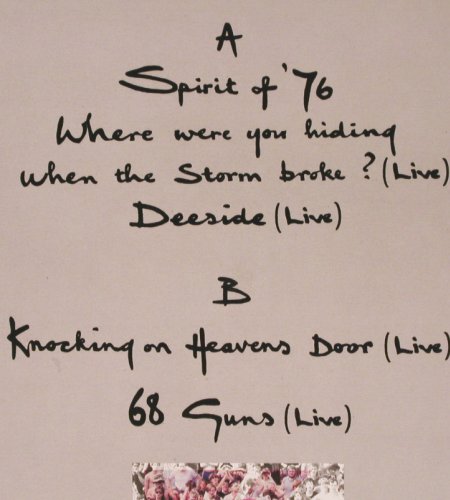 A
Spirit of '76
Where were you hiding
when the Storm broke? (Live)
Deeside (Live)
B
Knocking on Heavens Door (Live)
68 Guns (Live)